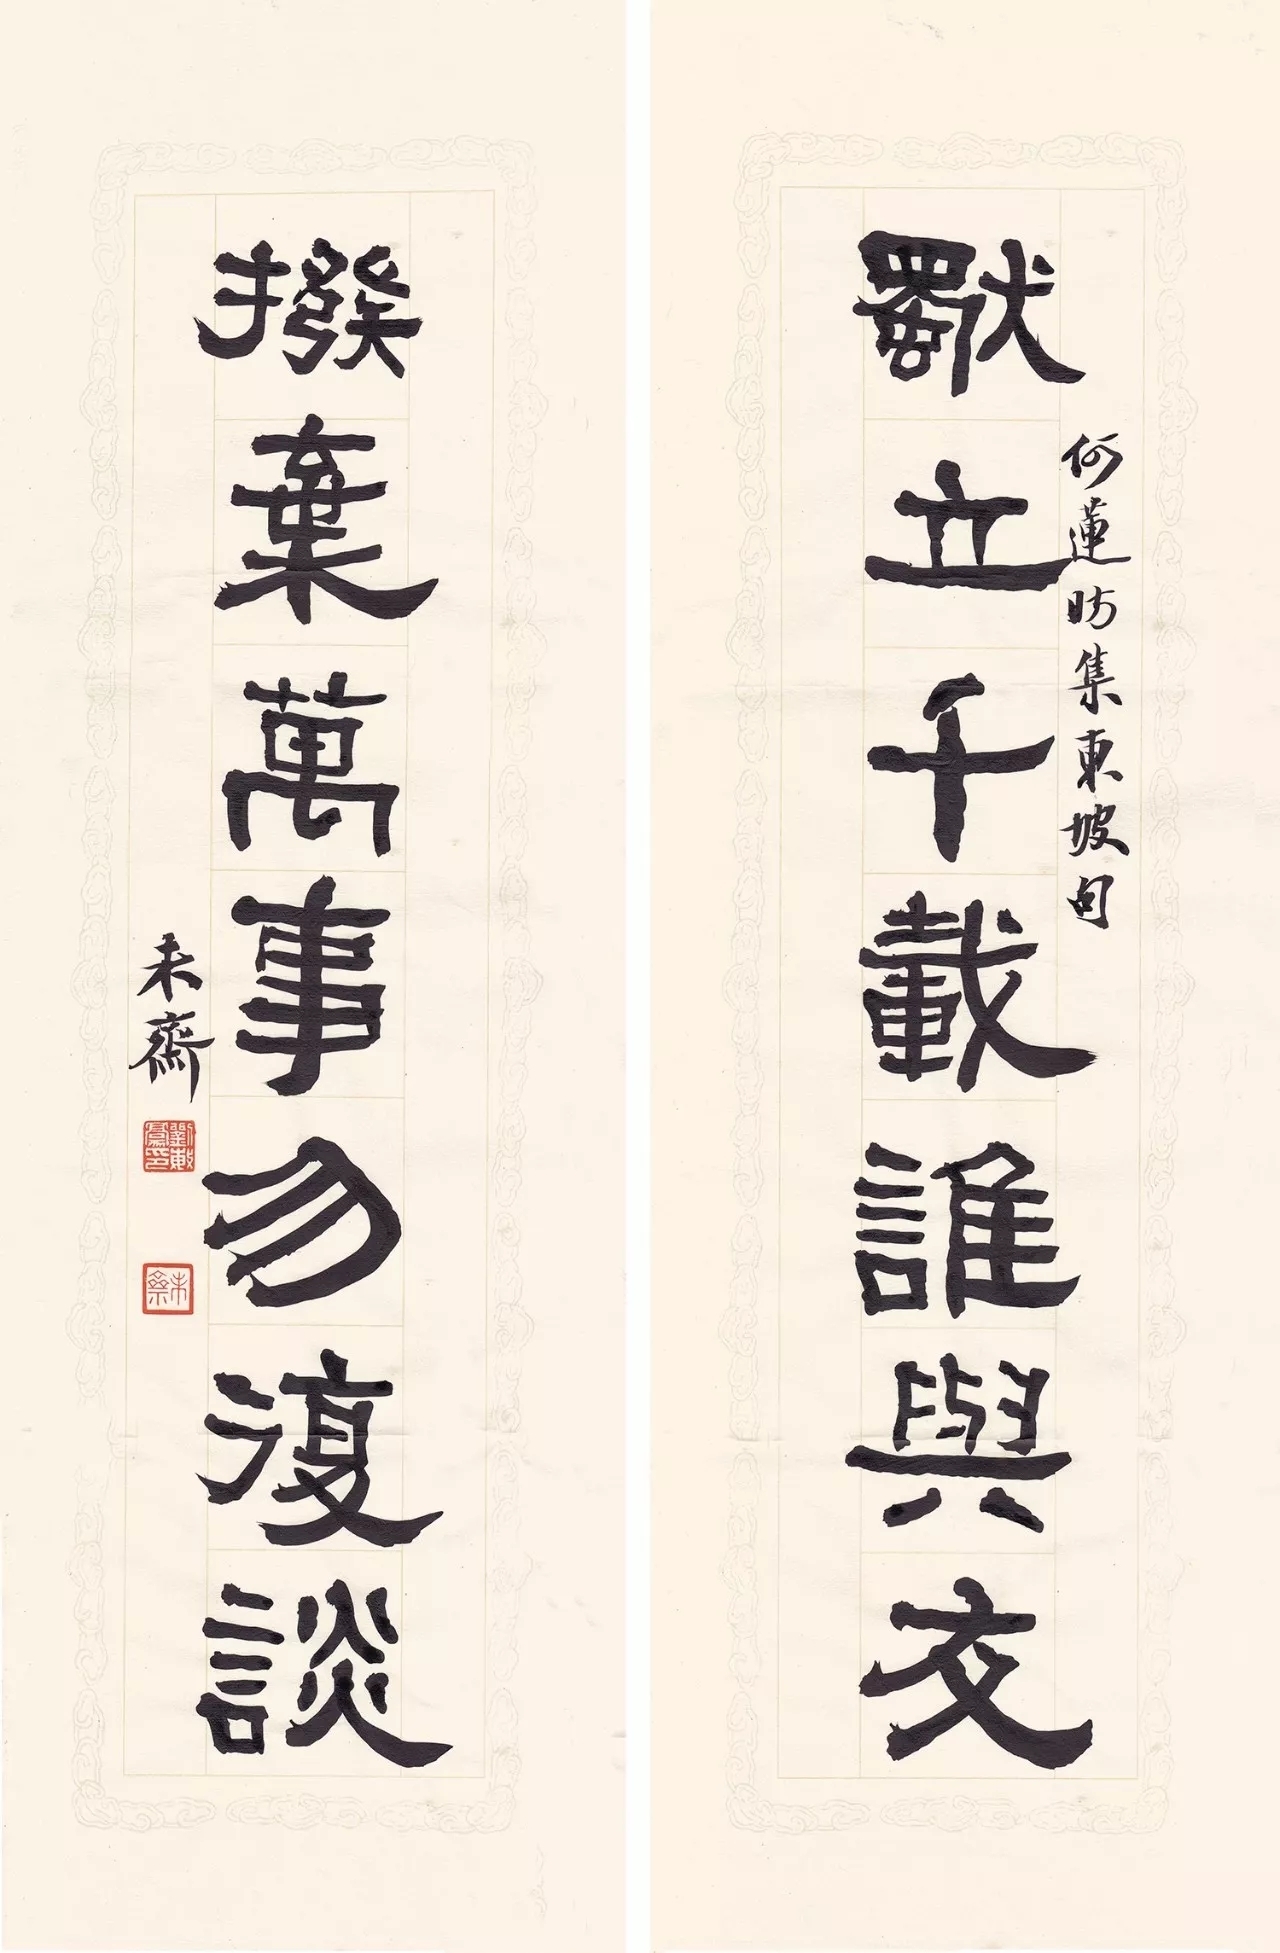 何蓮昉集東坡句
獨立千載誰與交
撥棄萬事勿復談
未齋